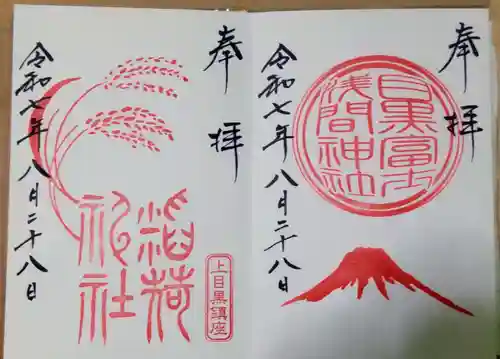 奉拝
目黒富士
浅間神社
令和七年八月二十八日
奉拝
稲荷
神社
上目黒鎮座
令和七年八月二十八日